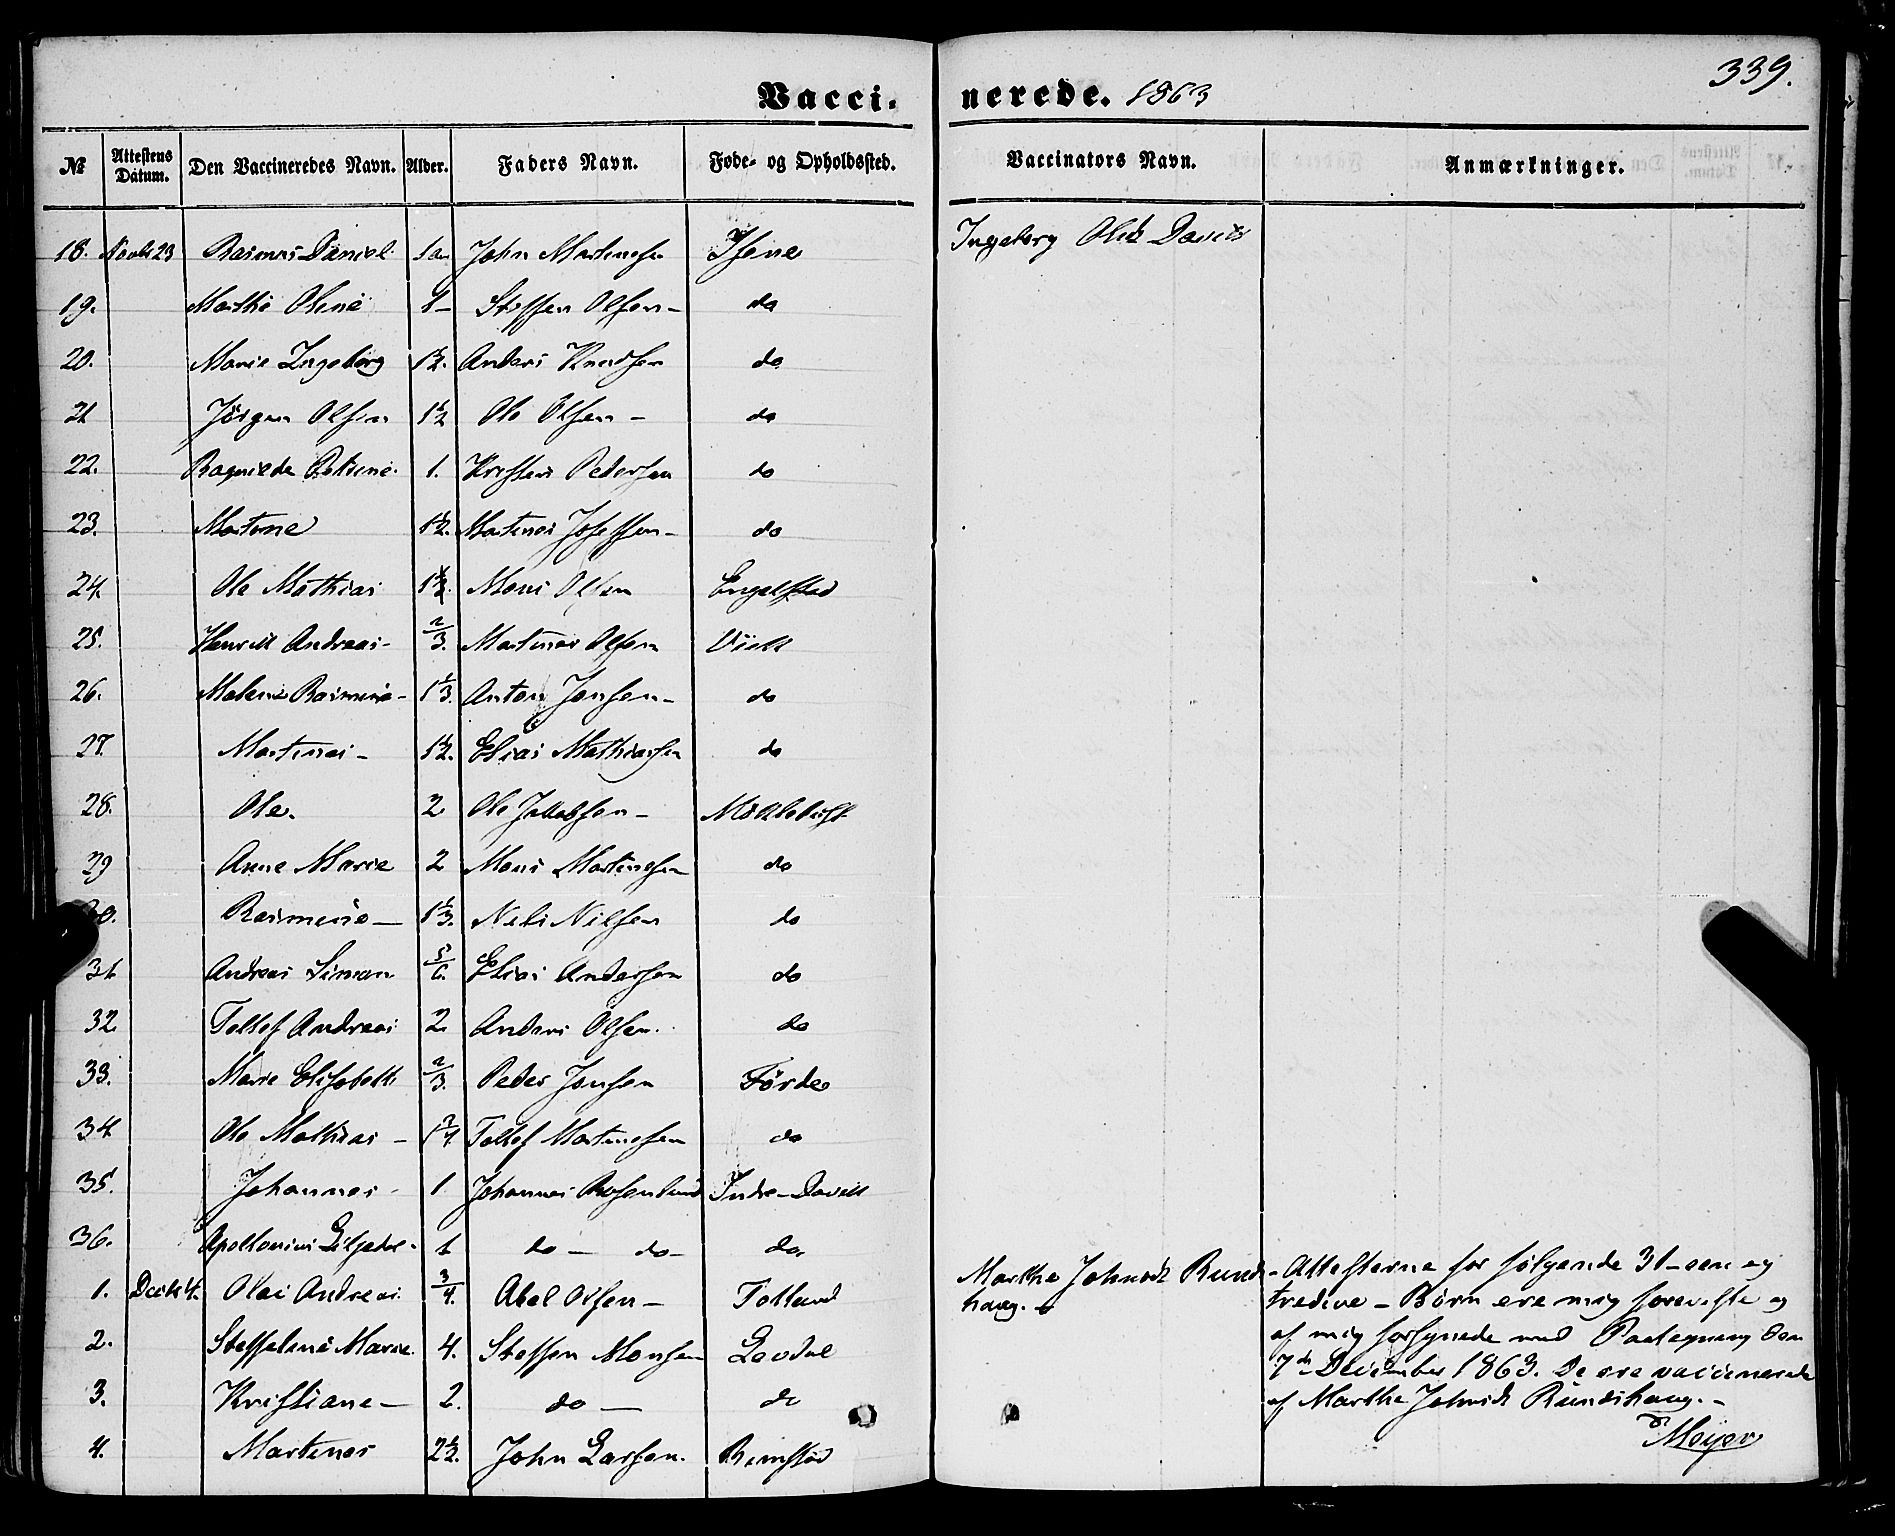 339.
Vacci- nerede. 1863
№ Attestens Datum. Den Vaccineredes Navn. Alder. Faders Navn. Føde- og Opholdssted. Vaccinators Navn. Anmærkninger.
18. Novbr 23 Rasmus Daniel 1 aar John Martinesen Isene Ingeborg Olsd. Davik
19. Marthe Oline 1 – Steffen Olsen – do
20. Marie Ingeborg 1½. Anders Knudsen do
21 Jörgen Olsen 1½ Ole Olsen – do
22. Ragnilde Oline. 1. Kristen Pedersen do
23. Martine 1½. Martines Josefsen – do
24. Ole Mathias 1½. Mons Olsen Engelstad
25. Henrik Andreas – 2/3. Martines Olsen Viik
26. Malene Rasmine – 1 1/3. Anton Jonsen – do
27. Martines – 1½. Elias Mathiassen do
28. Ole. 2 Ole Jakobsen – Möklebust
29 Anne Marie 2 Mons Martinesen do
30. Rasmine – 1 1/3. Nils Nilsen do
31 Andreas Simon 5/6. Elias Andersen do
32 Tollef Andreas 2 Anders Olsen. do
33. Marie Elisabeth 2/3. Peder Jonsen Förde
34 Ole Mathias – 1 Tollef Martinesen do
35. Johannes – 1 Johannes Rosenlund Indre-Davik
36. 1 do – do – do.
1. Decbr 4. Olai Andreas 3/4. Abel Olsen – Totland Marthe Johnsdt Runds- Attesterne for fölgende 31 – een og
haug. tredive – Börn ere mig foreviste og
2. Steffeline Marie. 4. Steffen Monsen Levdal af mig forsynede med Paategning den
7de December 1863. De ere vaccinerede
3. Kristiane – 2. do – do af Marthe Johnsdt Rundshaug. –
4. Martines 2½. John Larsen. Rimstad Meyer